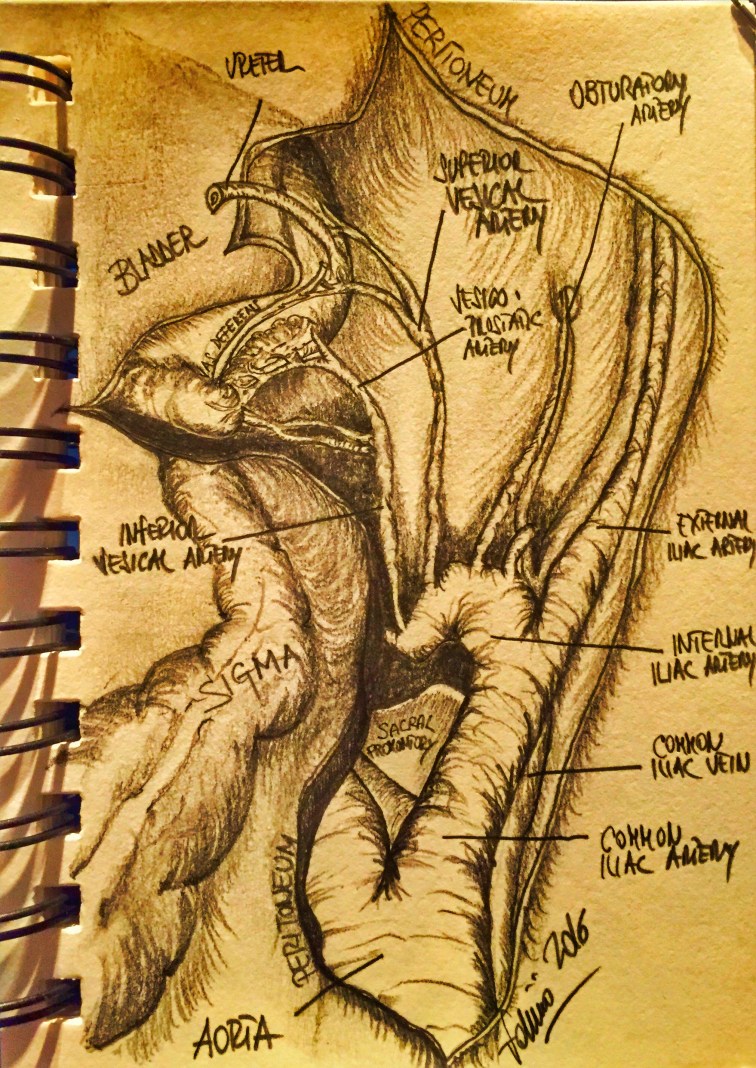 URETER
PERITONEUM
OBTURATORY
ARTERY
SUPERIOR
VESICAL
ARTERY
BLADDER
VESICO-
PROSTATIC
ARTERY
DEFERENS
INFERIOR
VESICAL ARTERY
EXTERNAL
ILIAC ARTERY
SIGMA
INTERNAL
ILIAC ARTERY
SACRAL
PROMONTORY
COMMON
ILIAC VEIN
COMMON
ILIAC ARTERY
PERITONEUM
AORTA
2016